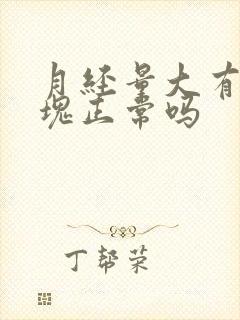 月经量大有
块正常吗
丁帮荣